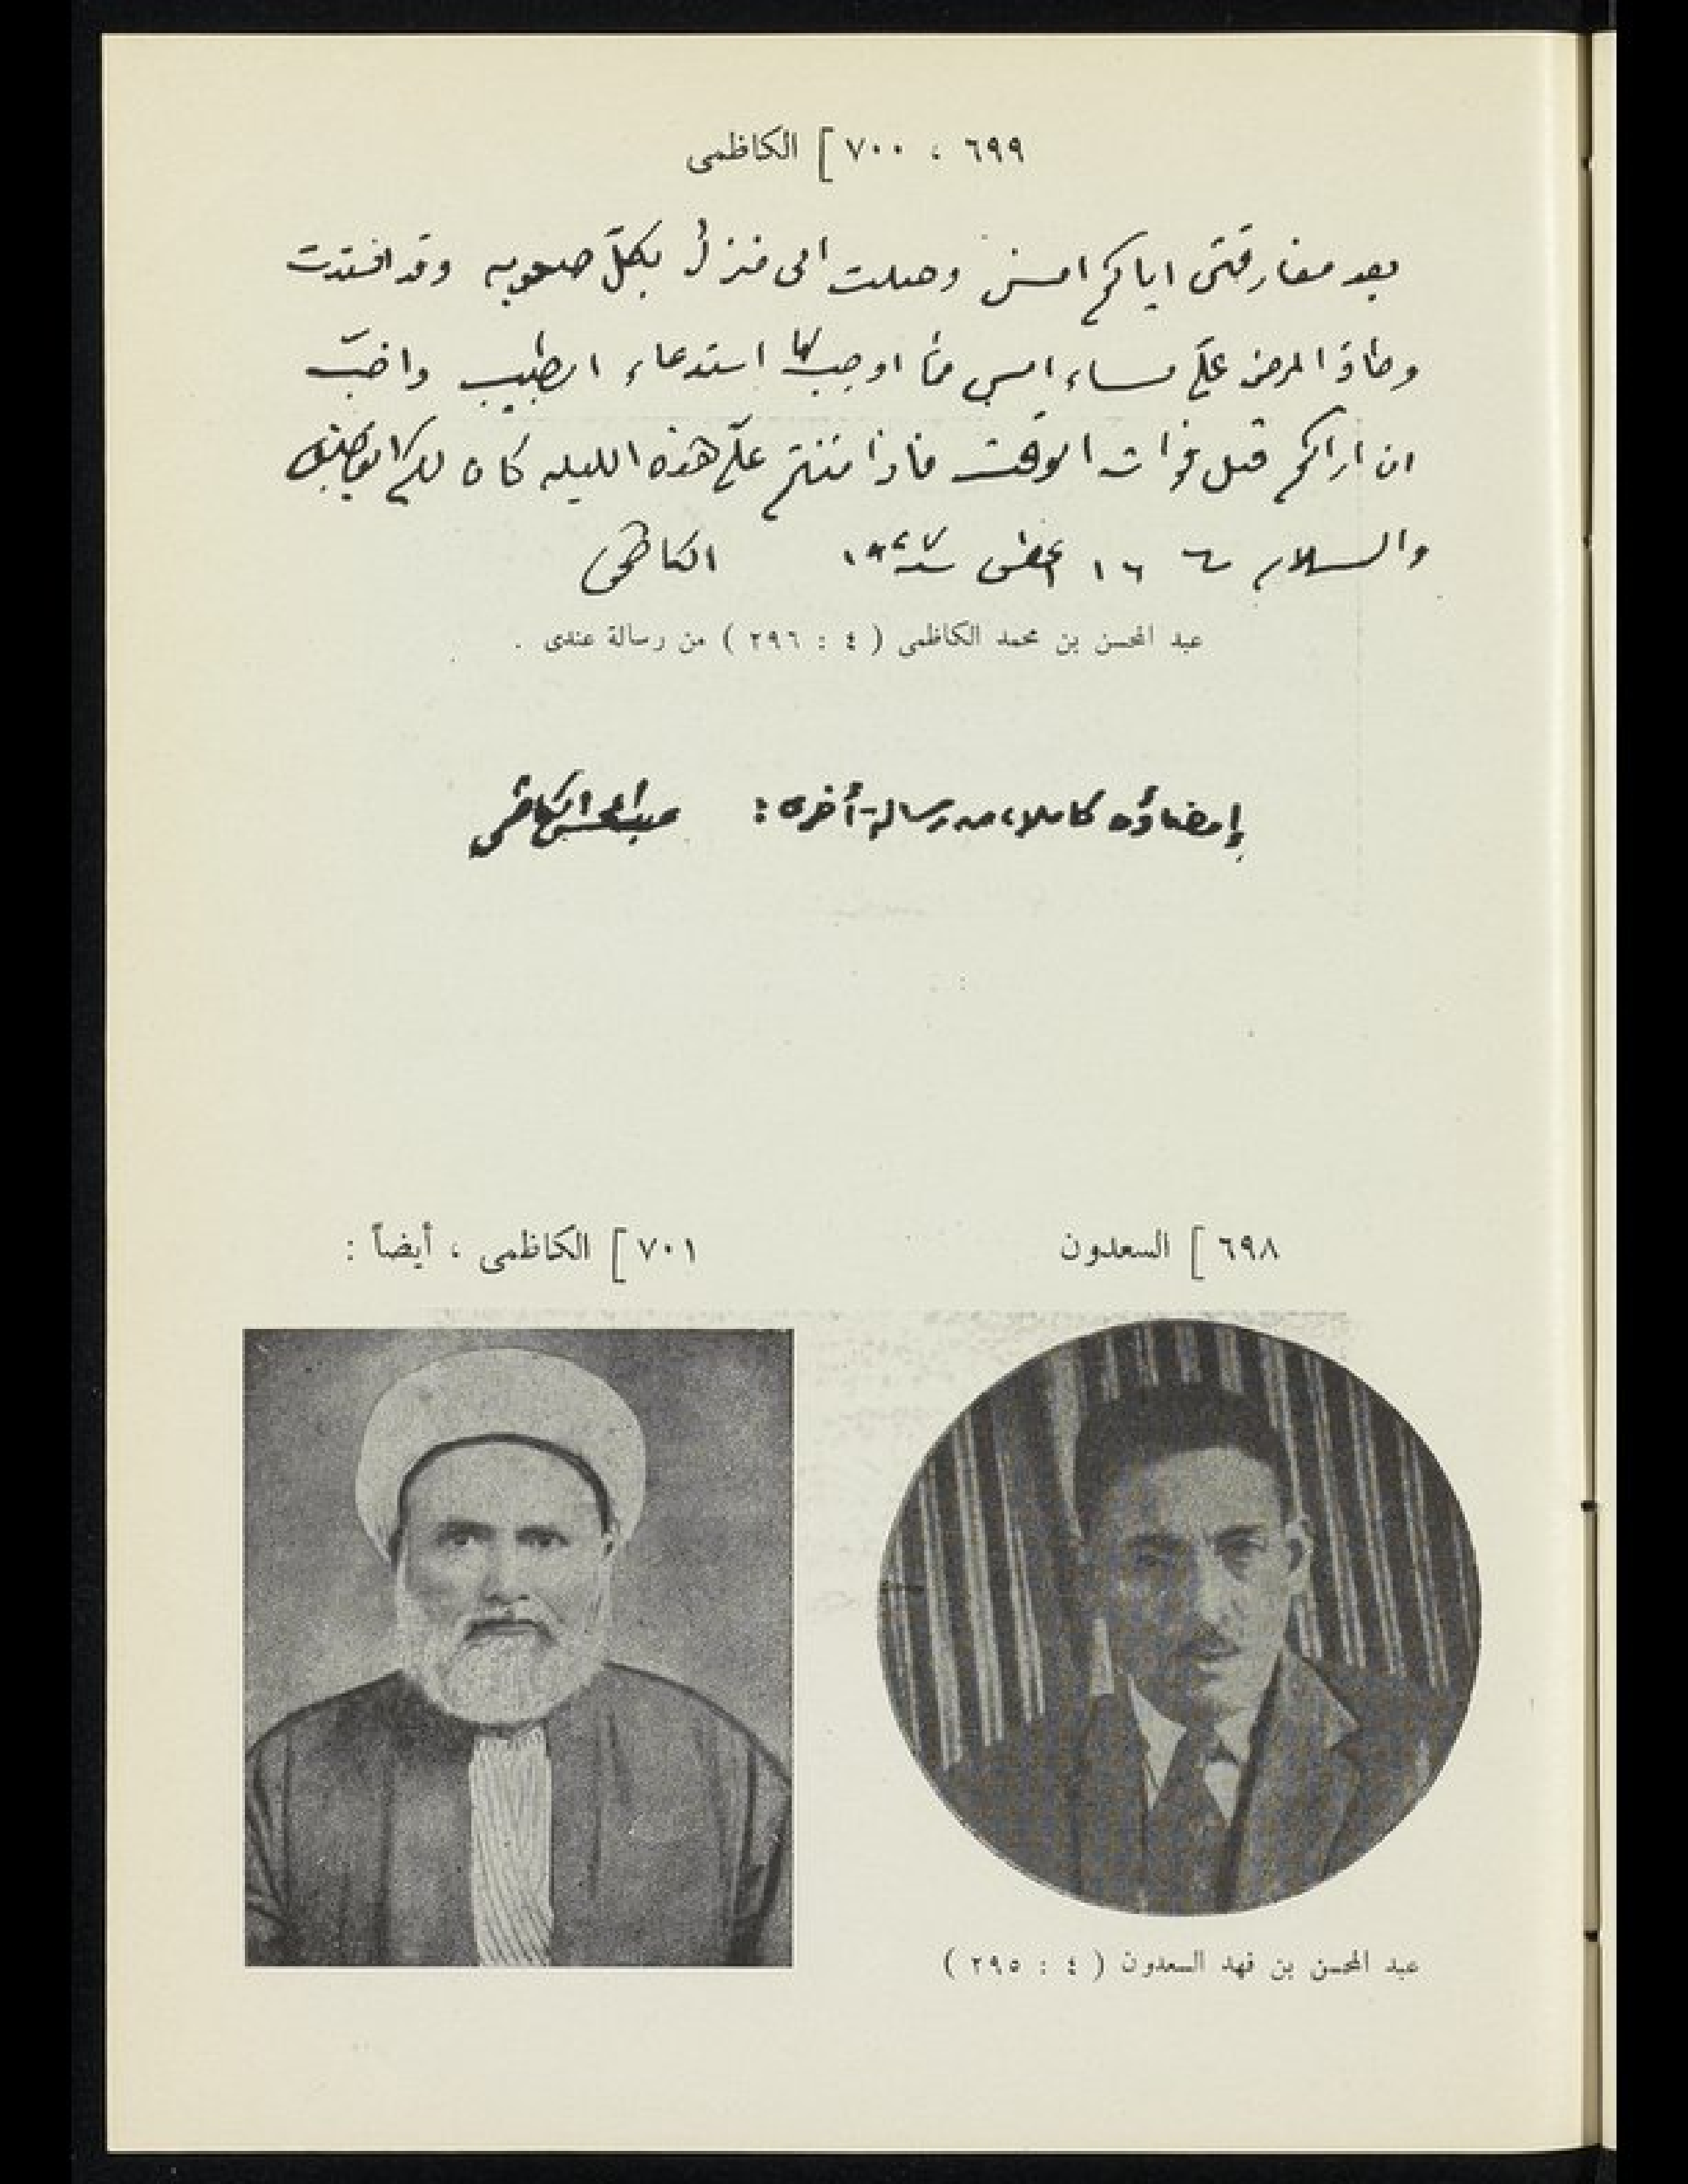 ٦٩٩ ، ٧٠٠ ] الكاظمى
بعد مفارقتى اياكم امس وصلت الى منزلى بكلّ صعوبه وقد اشتدت
وطأة المرض علىّ مساء امس ممّا اوجب استدعاء الطبيب واحبّ
ان اراكم قبل فوات الوقت فاذا مننتم علىّ هذه الليله كان لكم
والسلام ١٦ سنة الكاظمى
عبد المحسن بن محمد الكاظمى ( ٤ : ٢٩٦ ) من رسالة عندى .
إمضاؤه كاملا، من رسالة أخرى : عبد المحسن الكاظمى
٦٩٨ ] السعدون
٧٠١ ] الكاظمى ، أيضاً :
عبد المحسن بن فهد السعدون ( ٤ : ٢٩٥ )